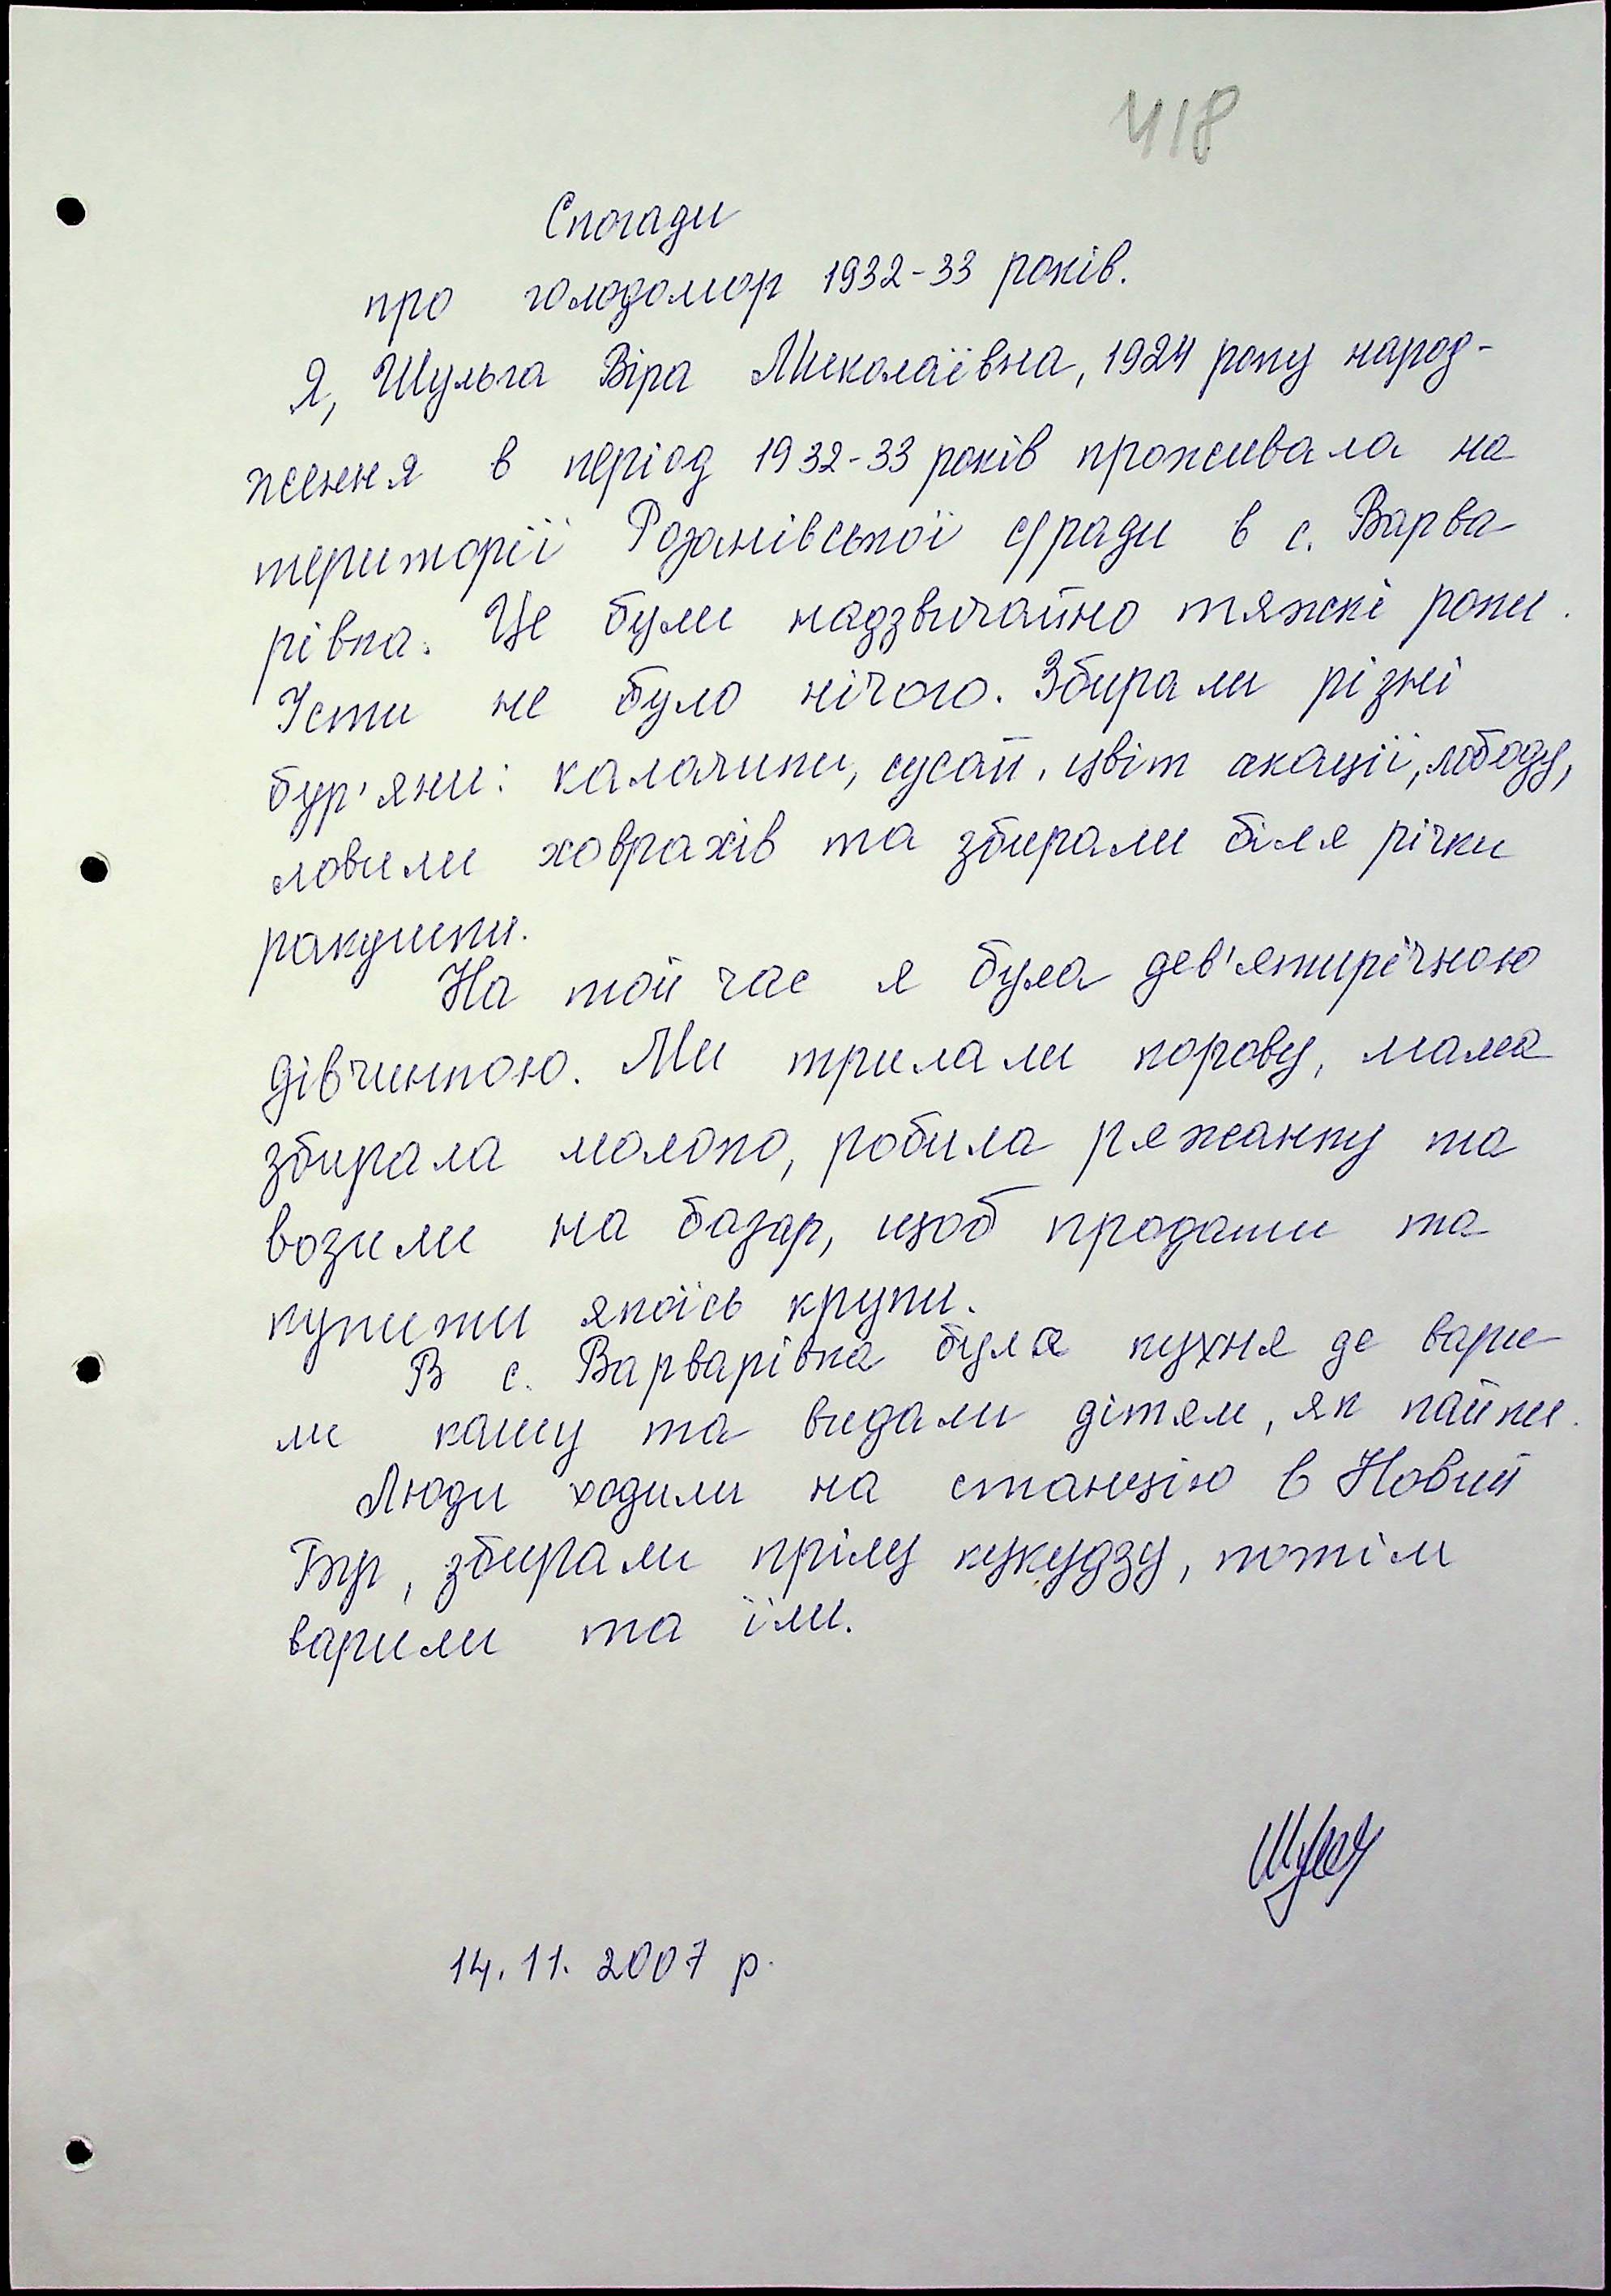 418
Спогади
про голодомор 1932-33 років.
Я, Шульга Віра Миколаївна, 1924 року народ-
ження в період 1932-33 років проживала на
території Розанівської с/ради в с. Варва
рівка. Це були надзвичайно тяжкі роки.
Їсти не було нічого. Збирали різні
бур'яни: калачики, сусай, цвіт акації, лободу,
ловили ховрахів та збирали біля річки
ракушки.
На той час я була дев'ятирічною
дівчинкою. Ми тримали корову, мама
збирала молоко, робила ряжанку та
возили на базар, щоб продати та
купити якоїсь крупи.
В с. Варварівка була кухня де вари
ли кашу та видали дітям, як пайки.
Люди ходили на станцію в Новий
Буг, збирали прілу кукудзу, потім
варили та їли.
14.11.2007 р.